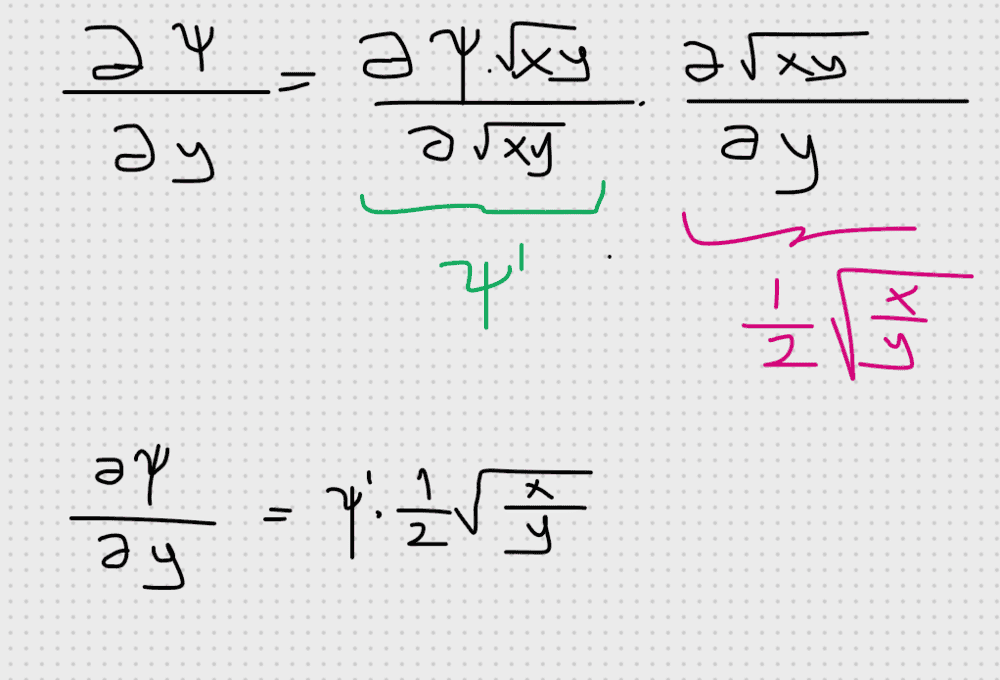 ∂ψ/∂y = ∂ψ·√(xy)/∂√(xy) · ∂√(xy)/∂y
ψ' 1/2 √(x/y)
∂ψ/∂y = ψ' · 1/2 √(x/y)